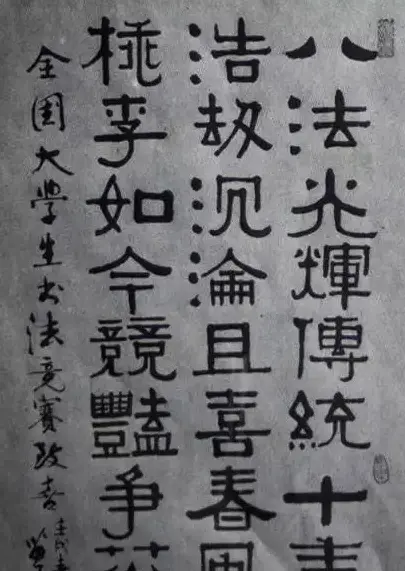 八法光輝傳統十
浩劫沉淪且喜春
桃李如今競豔争
全國大學生书法竞赛